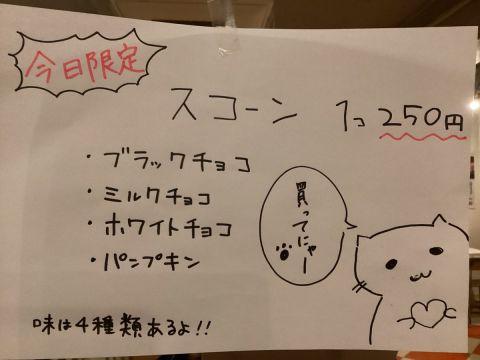 今日限定
スコーン 1コ 250円
・ブラックチョコ
・ミルクチョコ
・ホワイトチョコ
・パンプキン
買ってにゃー
味は4種類あるよ!!